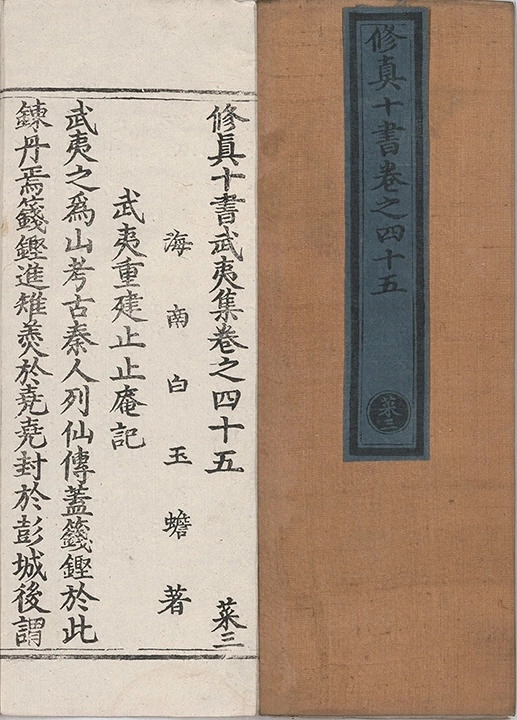 修真十書卷之四十五
菜三
修真十書武夷集卷之四十五 菜三
海南白玉蟾著
武夷重建止止庵記
武夷之為山考古秦人列仙傳蓋籛鏗於此
鍊丹焉籛鏗進雉羹於堯堯封於彭城後謂